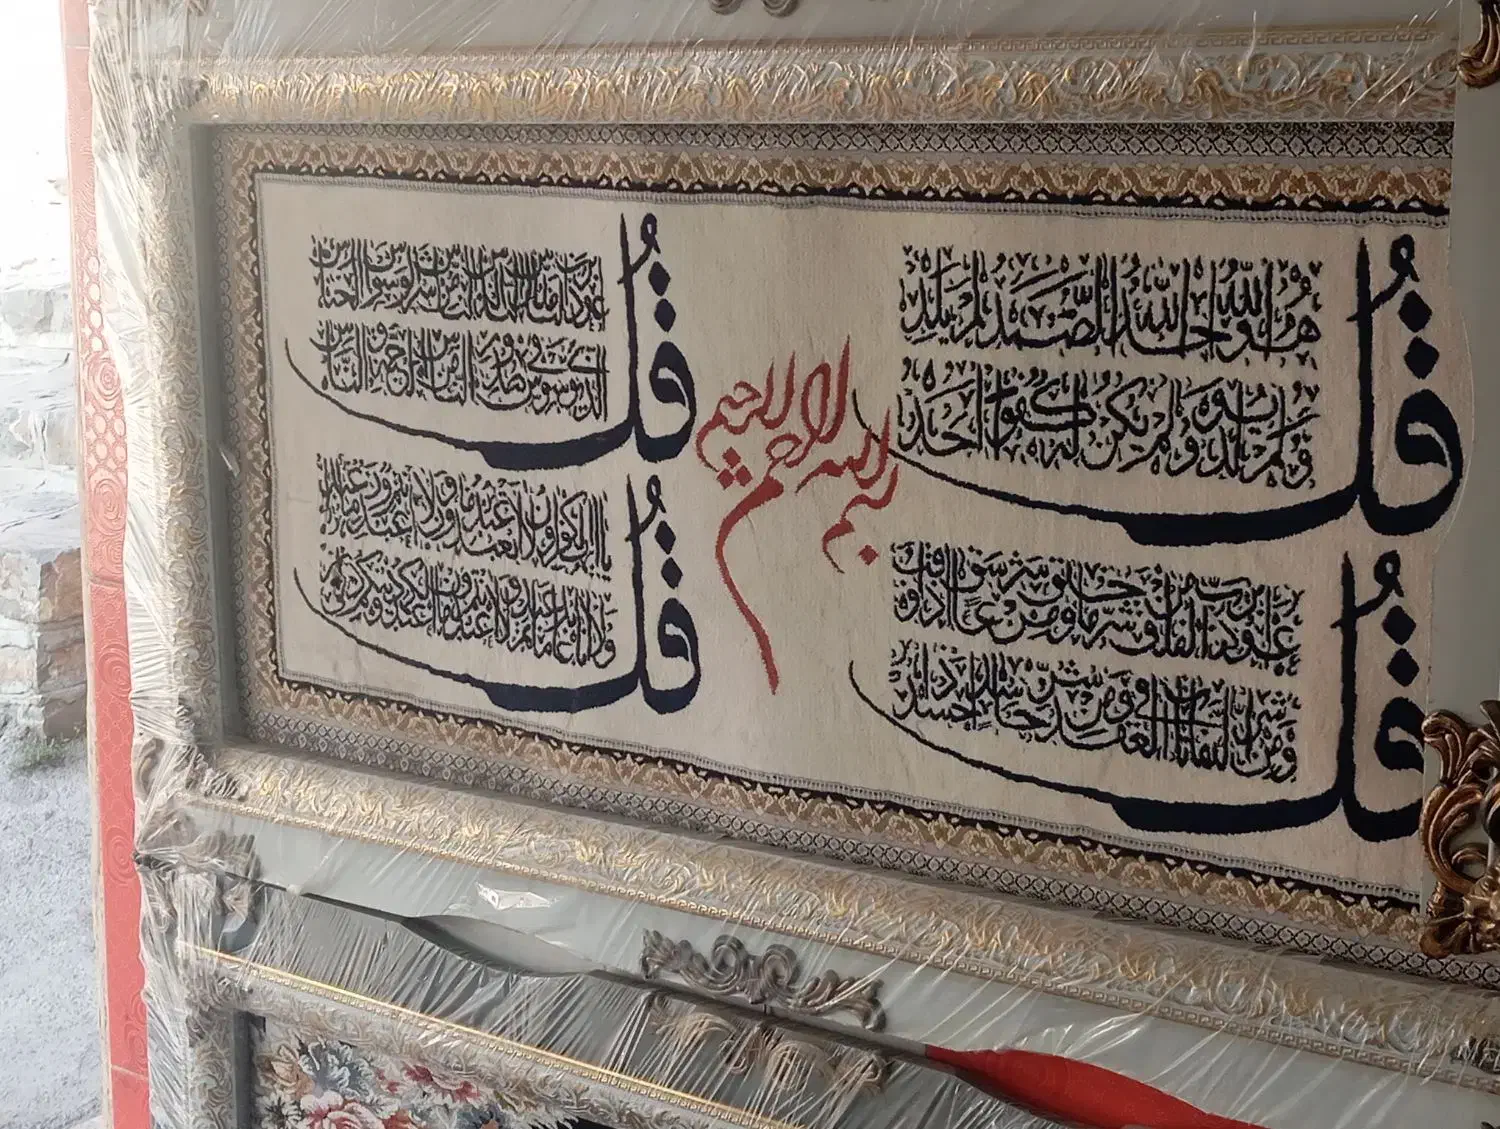 قُلْ هُوَ اللَّهُ أَحَدٌ اللَّهُ الصَّمَدُ لَمْ يَلِدْ
وَلَمْ يُولَدْ وَلَمْ يَكُنْ لَهُ كُفُوًا أَحَدٌ
قُلْ أَعُوذُ بِرَبِّ الْفَلَقِ مِنْ شَرِّ مَا خَلَقَ وَمِنْ شَرِّ غَاسِقٍ إِذَا وَقَبَ
وَمِنْ شَرِّ النَّفَّاثَاتِ فِي الْعُقَدِ وَمِنْ شَرِّ حَاسِدٍ إِذَا حَسَدَ
بسم الله الرحمن الرحيم
قُلْ أَعُوذُ بِرَبِّ النَّاسِ مَلِكِ النَّاسِ إِلَهِ النَّاسِ مِنْ شَرِّ الْوَسْوَاسِ الْخَنَّاسِ
الَّذِي يُوَسْوِسُ فِي صُدُورِ النَّاسِ مِنَ الْجِنَّةِ وَالنَّاسِ
قُلْ يَا أَيُّهَا الْكَافِرُونَ لَا أَعْبُدُ مَا تَعْبُدُونَ وَلَا أَنْتُمْ عَابِدُونَ مَا أَعْبُدُ
وَلَا أَنَا عَابِدٌ مَا عَبَدْتُمْ وَلَا أَنْتُمْ عَابِدُونَ مَا أَعْبُدُ لَكُمْ دِينُكُمْ وَلِيَ دِينِ